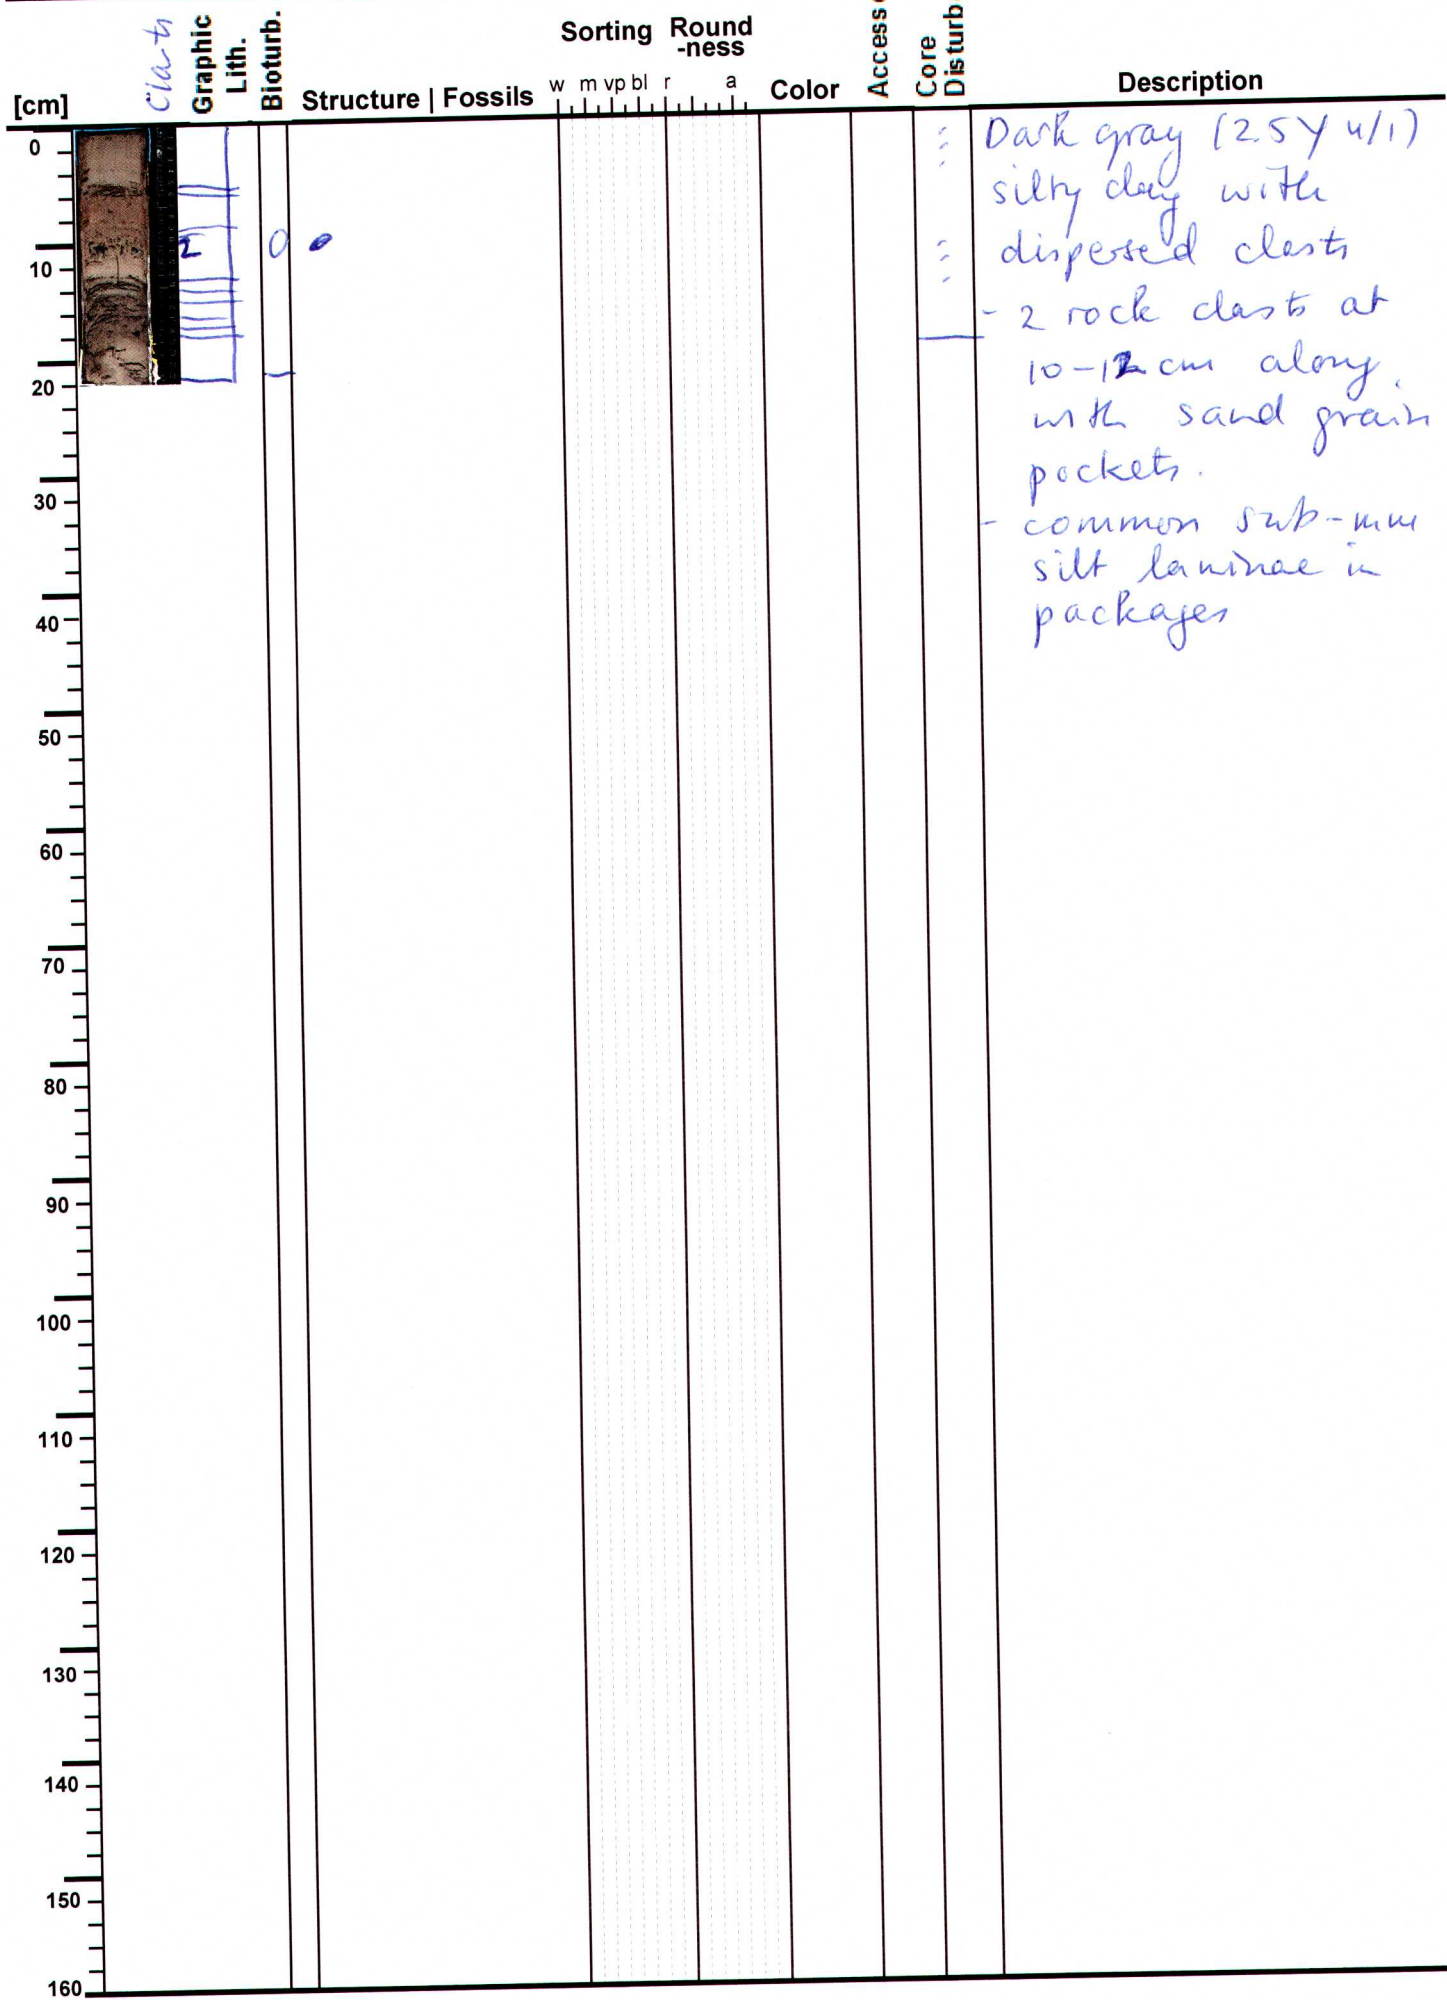 Clasts
Graphic
Lith.
Bioturb.
Structure | Fossils
Sorting
w m vp bl
Round
-ness
r a
Color
Access
Core
Disturb.
Description
[cm]
0
10
20
30
40
50
60
70
80
90
100
110
120
130
140
150
160
2
0
Dark gray (2.5Y 4/1)
silty clay with
dispersed clasts
- 2 rock clasts at
10-12 cm along
with sand grain
pockets.
- common sub-mm
silt laminae in
packages